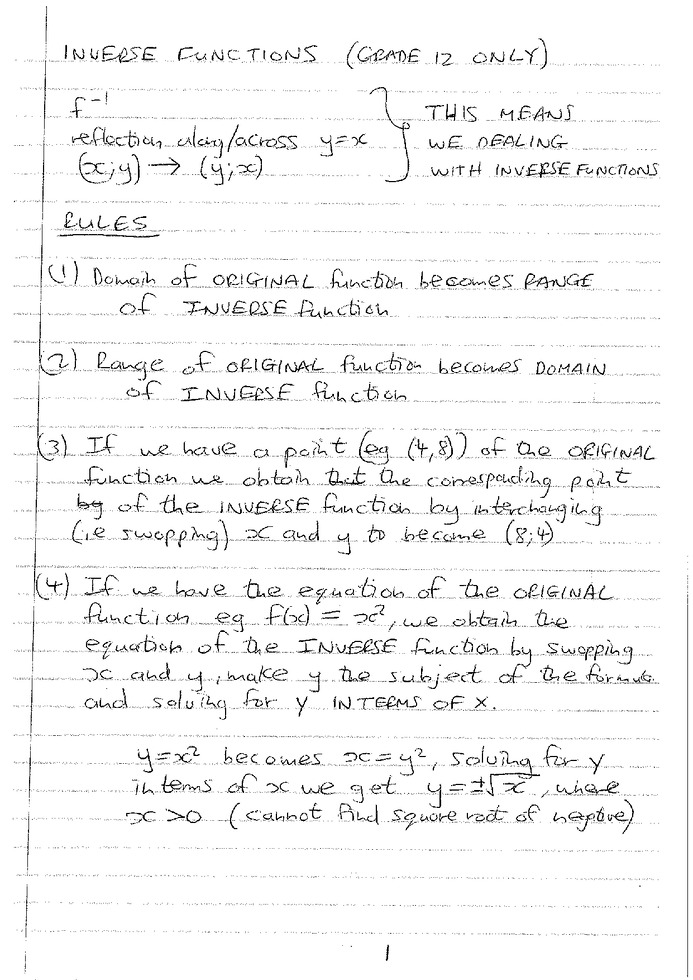 INVERSE FUNCTIONS (GRADE 12 ONLY)
f⁻¹
reflection along/across y=x
(x;y) → (y;x)
THIS MEANS
WE DEALING
WITH INVERSE FUNCTIONS
RULES
(1) Domain of ORIGINAL function becomes RANGE
of INVERSE function
(2) Range of ORIGINAL function becomes DOMAIN
of INVERSE function
(3) If we have a point (eg (4,8)) of the ORIGINAL
function we obtain that the corresponding point
by of the INVERSE function by interchanging
(ie swopping) x and y to become (8;4)
(4) If we have the equation of the ORIGINAL
function eg f(x) = x², we obtain the
equation of the INVERSE function by swopping
x and y, make y the subject of the formula
and solving for y IN TERMS OF X.
y=x² becomes x=y², solving for y
in terms of x we get y=±√x, where
x>0 (cannot find square root of negative)
1